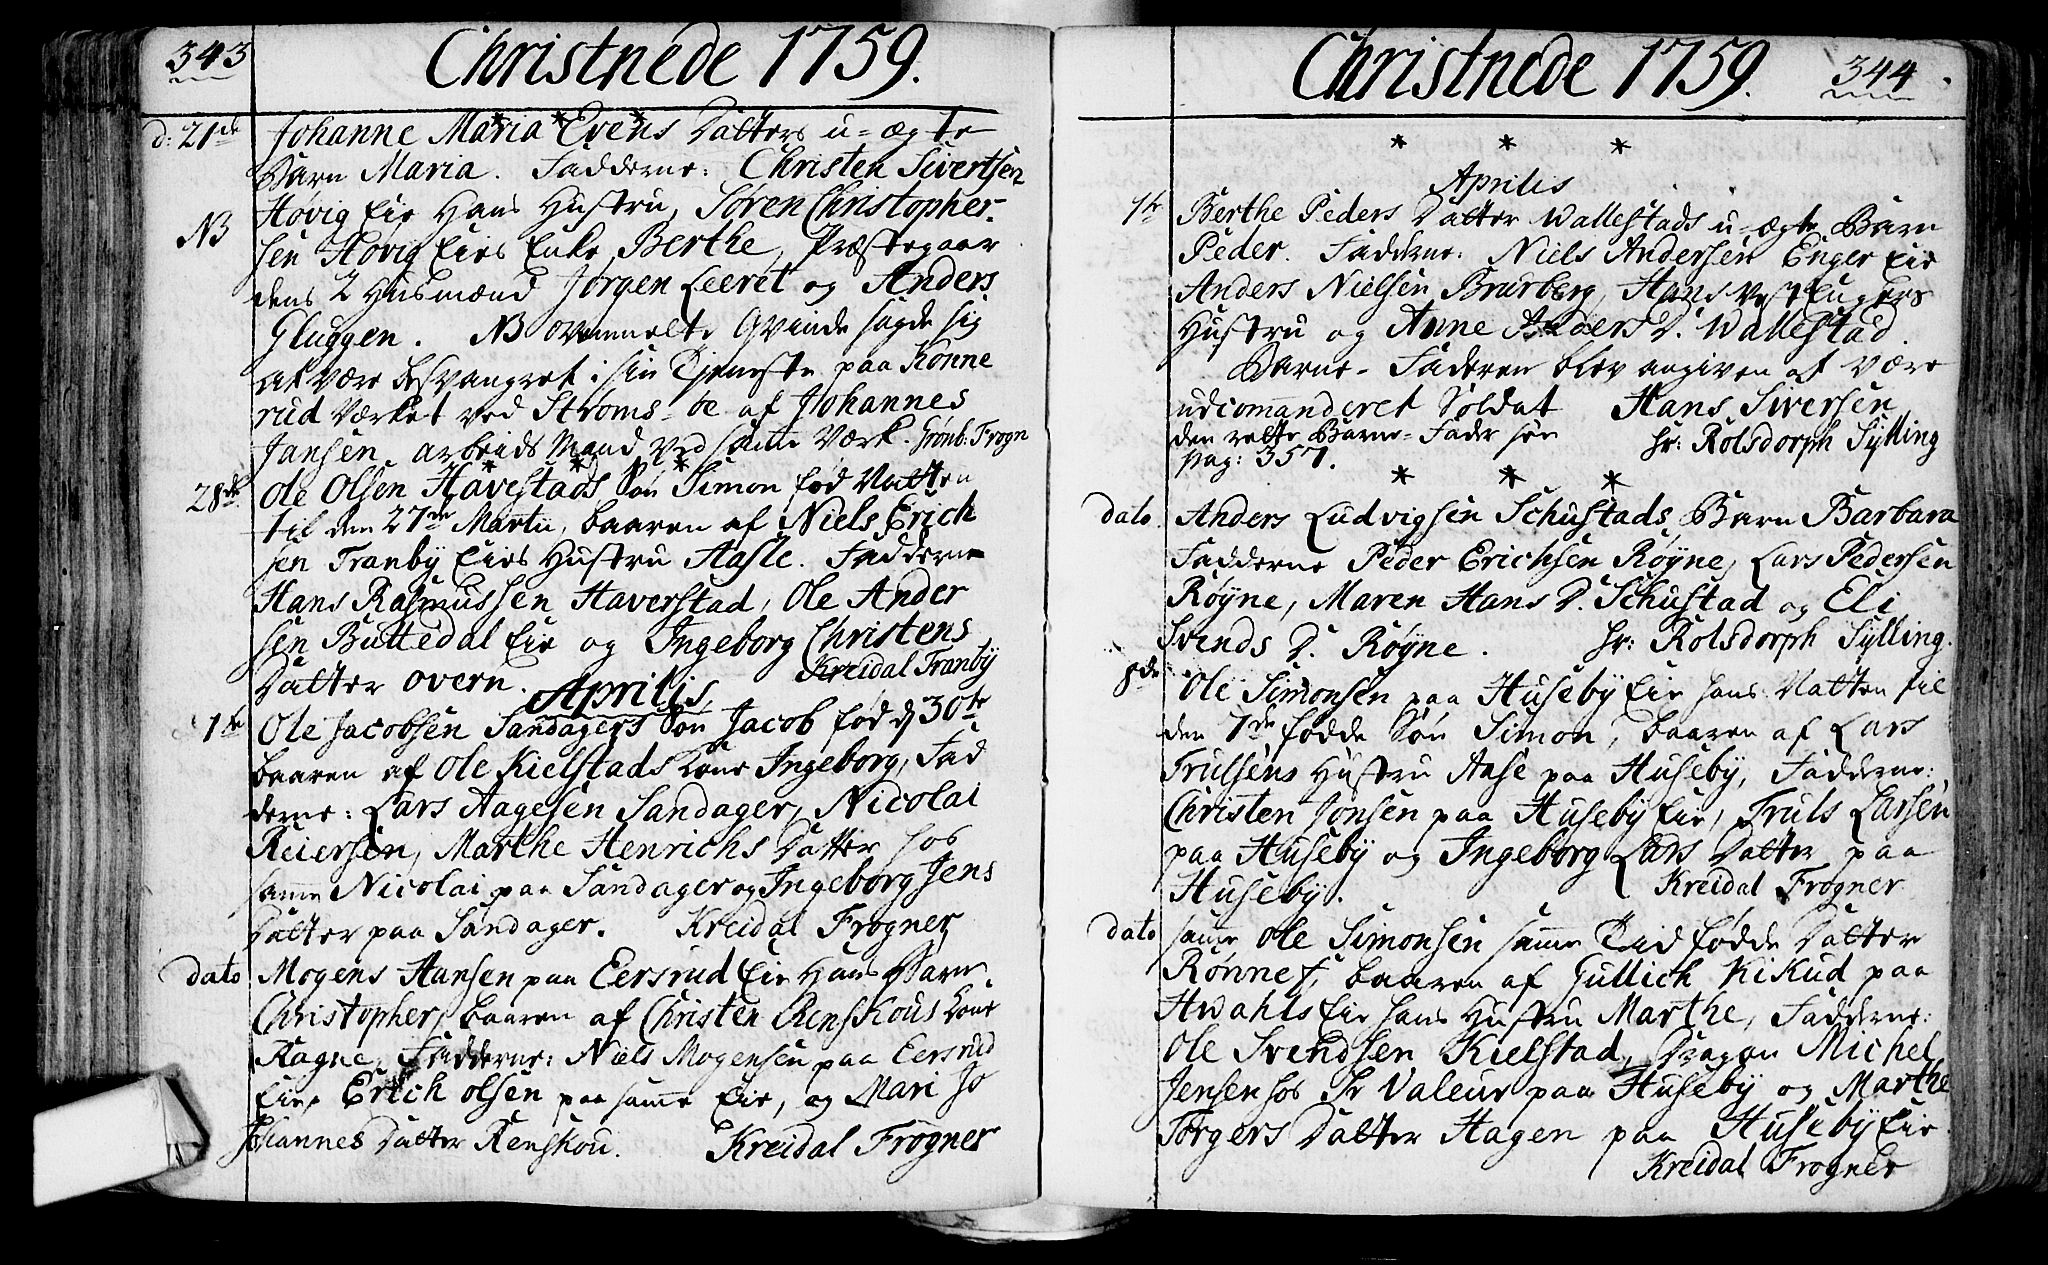 343
Christnede 1759.
d: 21de Johanne Maria Evens Datters u-ægte
Barn Maria. Fadderne: Christen Sivertsen
Høvig Eie Hans Hustru, Søren Christopher-
NB sen Høvig Eies Enke Berthe, Præstegaar
dens 2 Husmænd Jørgen Leeret og Anders
Gluggen. NB ovenmelte Qvinde sagde sig
at være besvangret i sin Tjeneste paa Kønne
rud Værket ved Strøms-øe af Johannes
Jansen, arbeids Mand ved samme Værk. Grønb: Frogn
* * *
28de Ole Olsen Havestads Søn Simon fød Natten
til den 27de Martii, baaren af Niels Erich
sen Tranby Eies Hustru Aasle. Fadderne
Hans Rasmussen Haverstad, Ole Ander
sen Buttedal Eie og Ingeborg Christens
Datter overn. Kreidal Tranby
Aprilis
1te Ole Jacobsen Sandagers Søn Jacob fød d 30te
baaren af Ole Kielstads Kone Ingeborg, Fad
derne: Lars Aagesen Sandager, Nicolai
Reiersen, Marthe Henrichs Datter hos
samme Nicolai paa Sandager og Ingeborg Jens
Datter paa Sandager. Kreidal Frogner
dato Mogens Hansen paa Eersrud Eie Hans Barn
Christopher, baaren af Christen Renskous Kone
Ragne, Fadderne: Niels Mogensen paa Eersrud
Eie, Erich Olsen paa samme Eie, og Mari Jo
Johannes Datter Renskou. Kreidal Frogner
Christnede 1759. 344
* * *
Aprilis
1te Berthe Peders Datter Wallestads u-ægte Barn
Peder. Fadderne: Niels Andersen Enger Eie
Anders Nielsen Brurberg, Hans Vest Engers
Hustru og Anne Anders D. Wallestad.
Barne-Faderen blev angiven at være
udcomanderet Soldat Hans Siversen
den rette Barne-Fader see
pag: 357. Hr: Rolsdorph Sylling
* * *
dato. Anders Ludvigsen Schustads Barn Barbara
Fadderne Peder Erichsen Røyne, Lars Pedersen
Røyne, Maren Hans D. Schustad og Eli
Svends D. Røyne. Hr: Rolsdorph Sylling.
8de Ole Simonsen paa Huseby Eie hans Natten til
den 7de fødde Søn Simon, baaren af Lars
Trulsens Hustru Aase paa Huseby, Fadderne:
Christen Jonsen paa Huseby Eie, Truls Larsen
paa Huseby og Ingeborg Lars Datter paa
Huseby. Kreidal Frogner
dato samme Ole Simonsen samme Tid fødde Datter
Rønnef, baaren af Gullich Kikud paa
Hwahls Eie hans Hustru Marthe, Fadderne:
Ole Svendsen Kielstad, Dragon Michel
Jensen hos Hr Valeur paa Huseby og Marthe
Torgers Datter Hagen paa Huseby Eie.
Kreidal Frogner